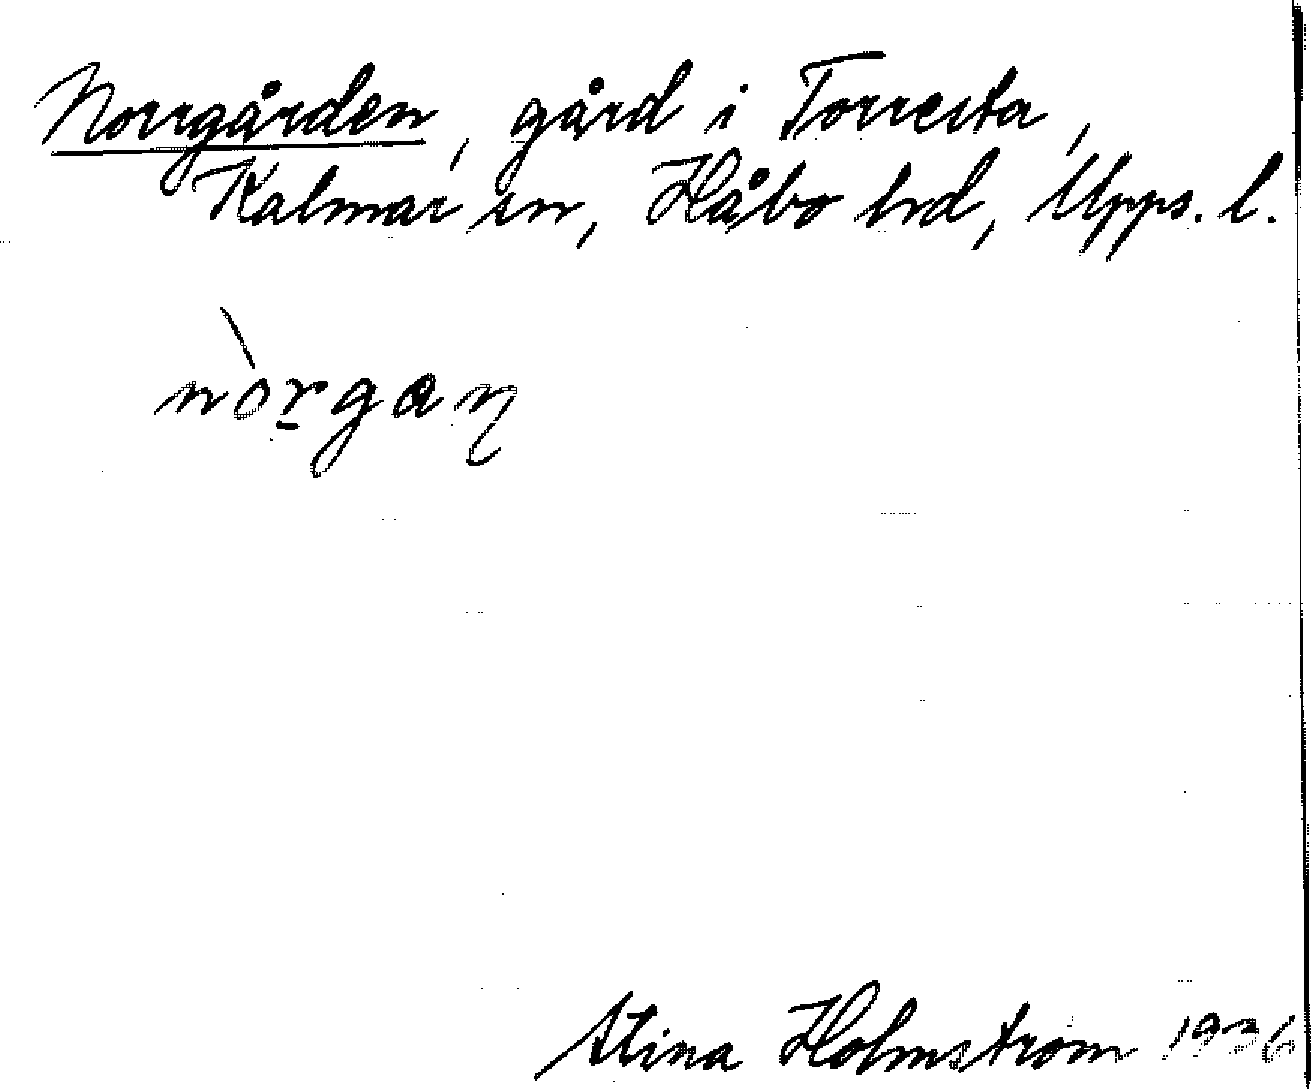 Norrgården, gård i Torresta,
Kalmar sn, Håbo hd, Upps. l.
nòr̠gaɳ
Stina Holmström 1936